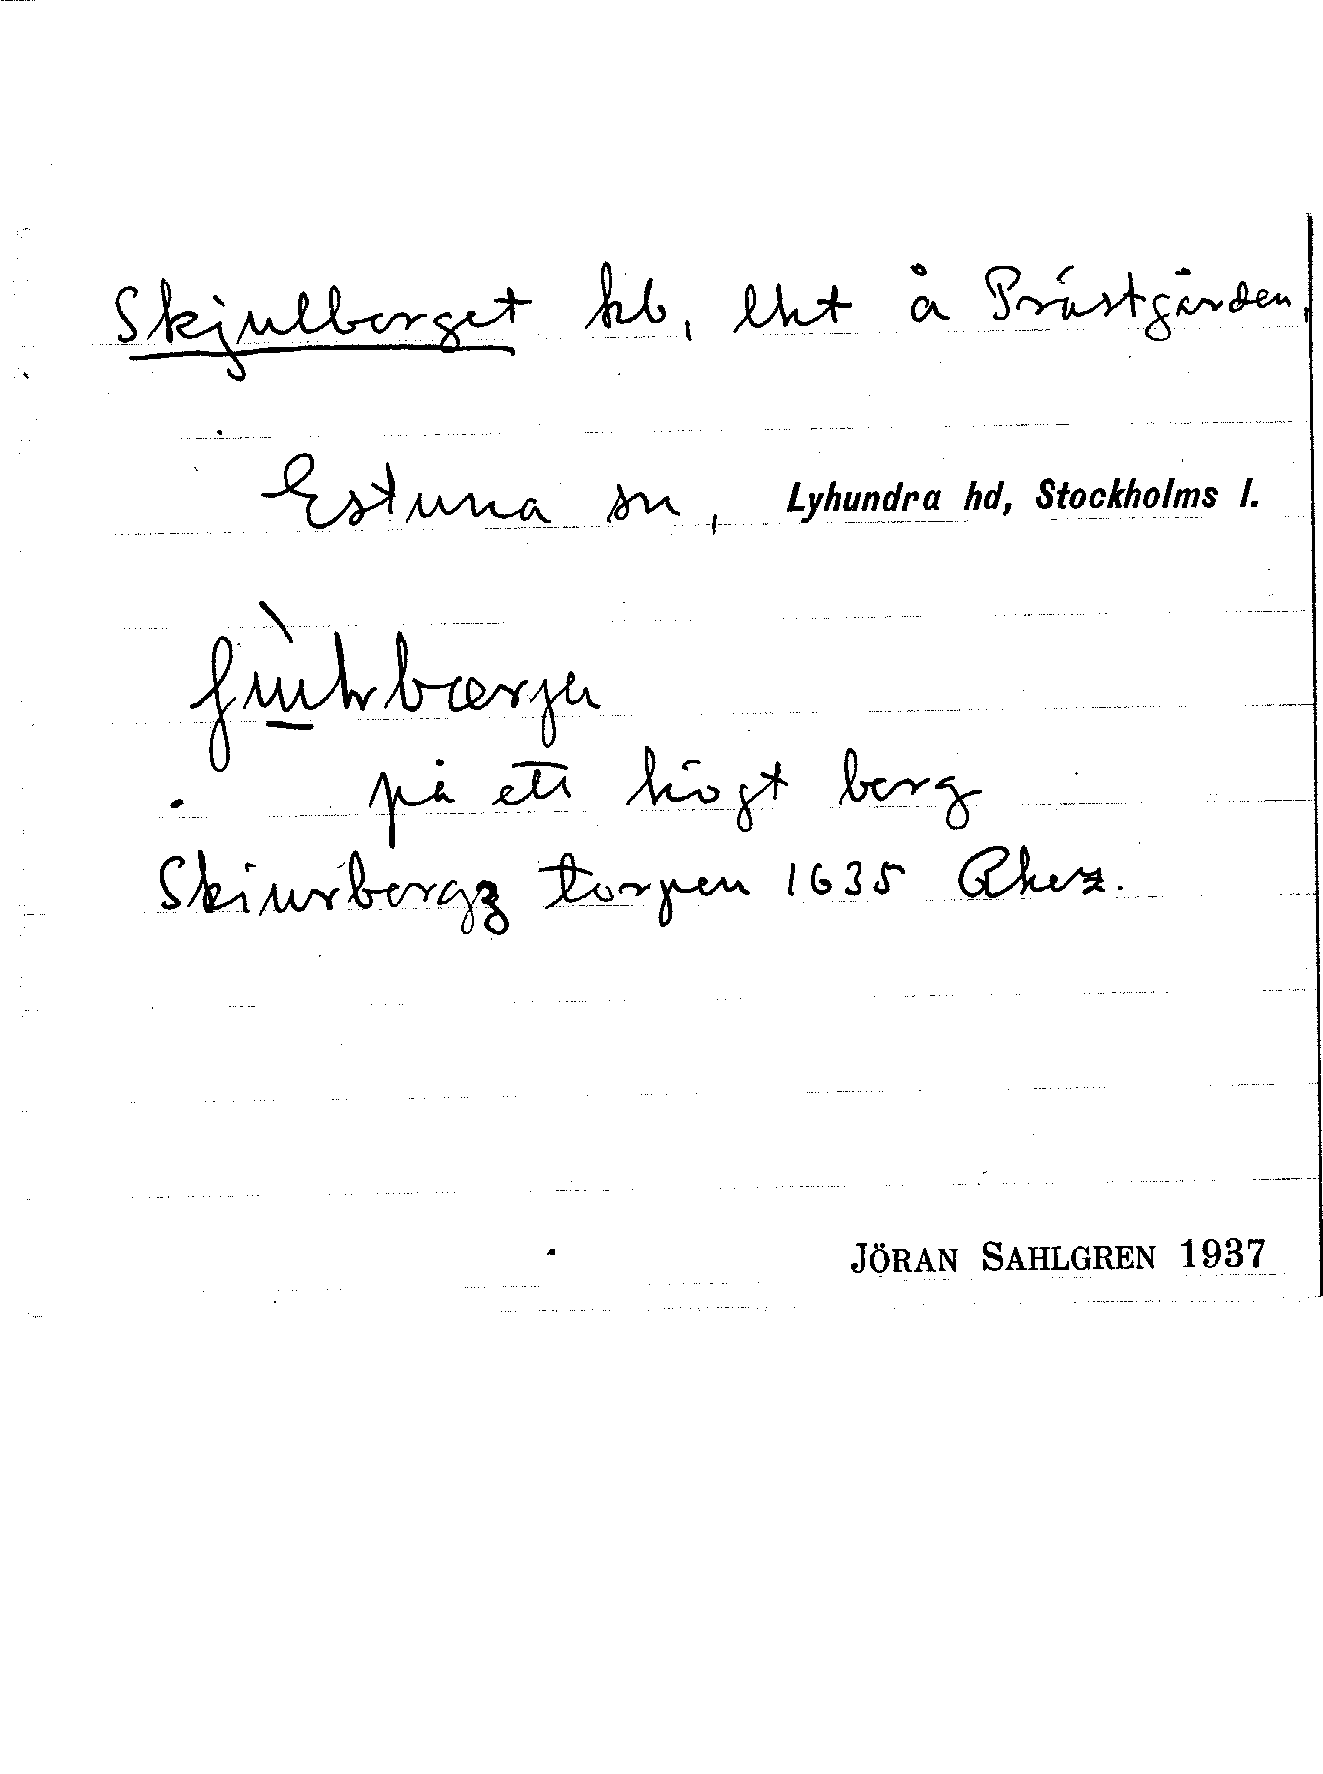 Skjulberget hb, lht å Prästgården,
Estuna sn, Lyhundra hd, Stockholms l.
på ett högt berg
Skiurbergz torpen 1635 Rhez.
JÖRAN SAHLGREN 1937